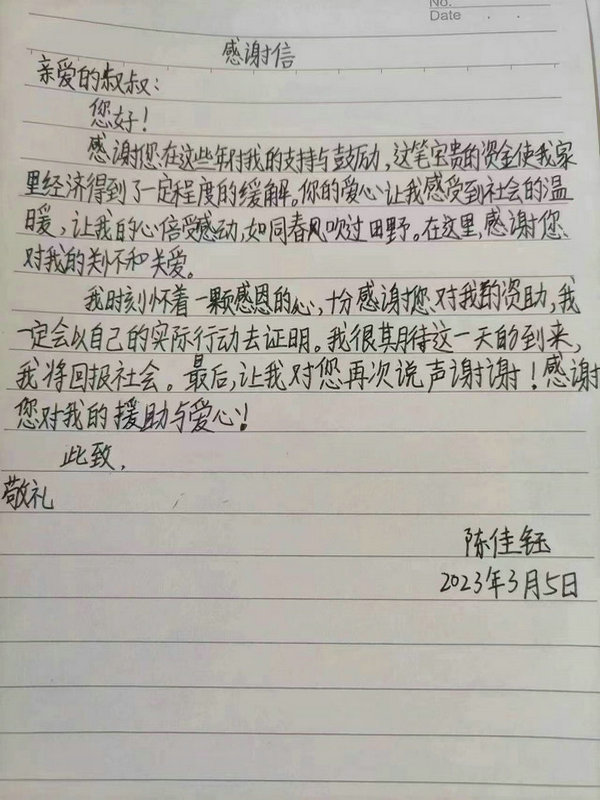 No.
Date . .
感谢信
亲爱的叔叔：
您好！
感谢您在这些年对我的支持与鼓励，这笔宝贵的资金使我家
里经济得到了一定程度的缓解。你的爱心让我感受到社会的温
暖，让我的心倍受感动，如同春风吹过田野。在这里，感谢您
对我的关怀和关爱。
我时刻怀着一颗感恩的心，十分感谢您对我的资助，我
一定会以自己的实际行动去证明。我很期待这一天的到来，
我将回报社会。最后，让我对您再次说声谢谢！感谢
您对我的援助与爱心！
此致，
敬礼
陈佳钰
2023年3月5日